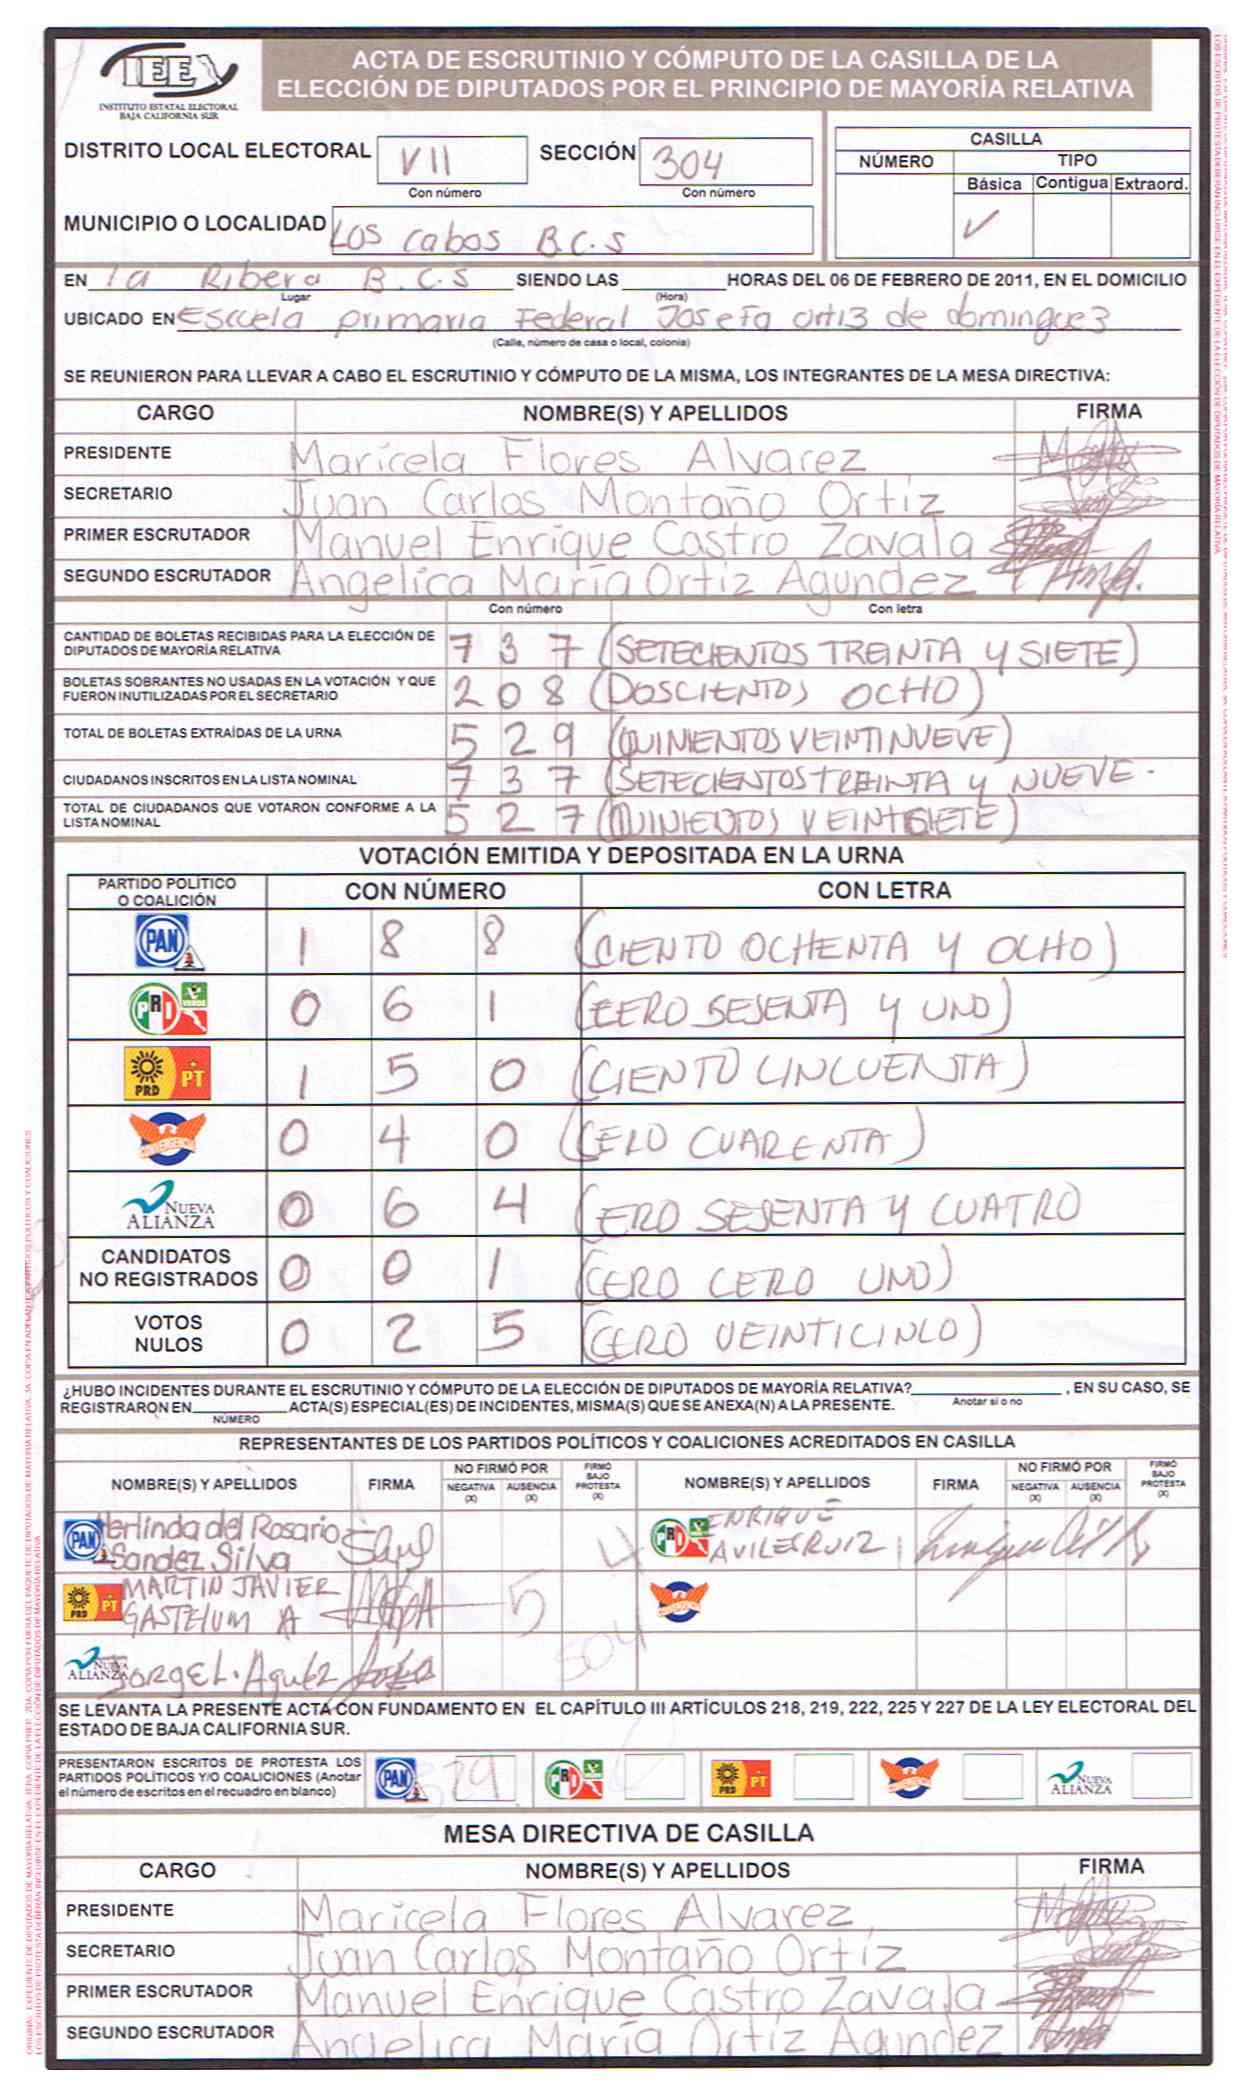 IEE
INSTITUTO ESTATAL ELECTORAL
BAJA CALIFORNIA SUR
ACTA DE ESCRUTINIO Y CÓMPUTO DE LA CASILLA DE LA
ELECCIÓN DE DIPUTADOS POR EL PRINCIPIO DE MAYORÍA RELATIVA
DISTRITO LOCAL ELECTORAL VII SECCIÓN 304
Con número Con número
CASILLA
NÚMERO TIPO
Básica Contigua Extraord.
✓
MUNICIPIO O LOCALIDAD Los cabos B.C.S
EN la Ribera B.C.S SIENDO LAS HORAS DEL 06 DE FEBRERO DE 2011, EN EL DOMICILIO
Lugar (Hora)
UBICADO EN Escuela primaria Federal Josefa orti3 de domingue3
(Calle, número de casa o local, colonia)
SE REUNIERON PARA LLEVAR A CABO EL ESCRUTINIO Y CÓMPUTO DE LA MISMA, LOS INTEGRANTES DE LA MESA DIRECTIVA:
CARGO NOMBRE(S) Y APELLIDOS FIRMA
PRESIDENTE Maricela Flores Alvarez
SECRETARIO Juan Carlos Montaño Ortíz
PRIMER ESCRUTADOR Manuel Enrique Castro Zavala
SEGUNDO ESCRUTADOR Angelica María Ortiz Agundez
Con número Con letra
CANTIDAD DE BOLETAS RECIBIDAS PARA LA ELECCIÓN DE
DIPUTADOS DE MAYORÍA RELATIVA 7 3 7 (SETECIENTOS TREINTA Y SIETE)
BOLETAS SOBRANTES NO USADAS EN LA VOTACIÓN Y QUE
FUERON INUTILIZADAS POR EL SECRETARIO 2 0 8 (DOSCIENTOS OCHO)
TOTAL DE BOLETAS EXTRAÍDAS DE LA URNA 5 2 9 (QUINIENTOS VEINTINUEVE)
CIUDADANOS INSCRITOS EN LA LISTA NOMINAL 7 3 7 (SETECIENTOS TREINTA Y NUEVE.
TOTAL DE CIUDADANOS QUE VOTARON CONFORME A LA
LISTA NOMINAL 5 2 7 (QUINIENTOS VEINTISIETE)
VOTACIÓN EMITIDA Y DEPOSITADA EN LA URNA
PARTIDO POLÍTICO
O COALICIÓN CON NÚMERO CON LETRA
PAN 1 8 8 (CIENTO OCHENTA Y OCHO)
PRI VERDE 0 6 1 (CERO SESENTA Y UNO)
PRD PT 1 5 0 (CIENTO CINCUENTA)
CONVERGENCIA 0 4 0 (CERO CUARENTA)
NUEVA
ALIANZA 0 6 4 (CERO SESENTA Y CUATRO
CANDIDATOS
NO REGISTRADOS 0 0 1 (CERO CERO UNO)
VOTOS
NULOS 0 2 5 (CERO VEINTICINCO)
¿HUBO INCIDENTES DURANTE EL ESCRUTINIO Y CÓMPUTO DE LA ELECCIÓN DE DIPUTADOS DE MAYORÍA RELATIVA? , EN SU CASO, SE
REGISTRARON EN ACTA(S) ESPECIAL(ES) DE INCIDENTES, MISMA(S) QUE SE ANEXA(N) A LA PRESENTE. Anotar si o no
NÚMERO
REPRESENTANTES DE LOS PARTIDOS POLÍTICOS Y COALICIONES ACREDITADOS EN CASILLA
NOMBRE(S) Y APELLIDOS FIRMA NO FIRMÓ POR NEGATIVA (X) AUSENCIA (X) FIRMÓ BAJO PROTESTA (X) NOMBRE(S) Y APELLIDOS FIRMA NO FIRMÓ POR NEGATIVA (X) AUSENCIA (X) FIRMÓ BAJO PROTESTA (X)
PAN Herlinda del Rosario
Sandez Silva
PRI ENRIQUE
AVILES RUIZ
PRD PT MARTIN JAVIER
GASTELUM A
5
CONVERGENCIA
504
NUEVA ALIANZA Jorge L.
SE LEVANTA LA PRESENTE ACTA CON FUNDAMENTO EN EL CAPÍTULO III ARTÍCULOS 218, 219, 222, 225 Y 227 DE LA LEY ELECTORAL DEL
ESTADO DE BAJA CALIFORNIA SUR.
PRESENTARON ESCRITOS DE PROTESTA LOS
PARTIDOS POLÍTICOS Y/O COALICIONES (Anotar
el número de escritos en el recuadro en blanco)
PAN 529 PRI PRD PT CONVERGENCIA NUEVA ALIANZA
MESA DIRECTIVA DE CASILLA
CARGO NOMBRE(S) Y APELLIDOS FIRMA
PRESIDENTE Maricela Flores Alvarez
SECRETARIO Juan Carlos Montaño Ortíz
PRIMER ESCRUTADOR Manuel Enrique Castro Zavala
SEGUNDO ESCRUTADOR Angelica María Ortíz Agundez